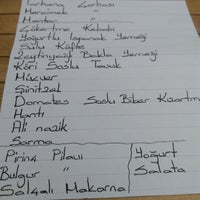 Tarhana Çorbası
Mercimek "
Mantar "
Çökertme Kebabı
Yoğurtlu Ispanak Yemeği
Sulu Köfte
Zeytinyağlı Bakla Yemeği
Köri Soslu Tavuk
Mücver
Şinitzel
Domates Soslu Biber Kızartma
Mantı
Ali nazik
Sarma
Pirinç Pilavı
Bulgur "
Salçalı Makarna
Yoğurt
Salata